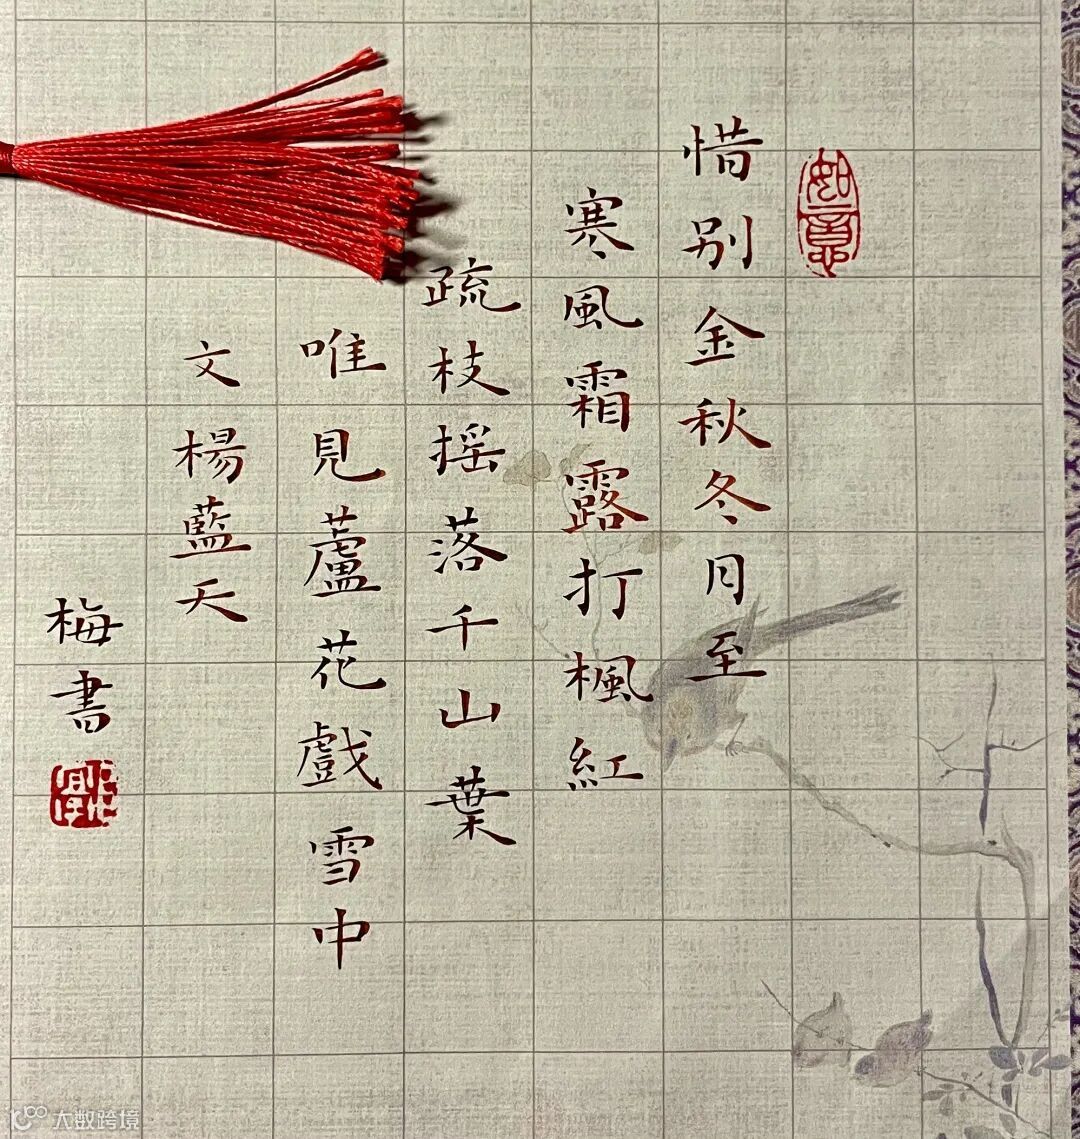 如意
惜别金秋冬月至
寒風霜露打楓紅
疏枝摇落千山葉
唯見蘆花戲雪中
文楊藍天
梅書
大数跨境